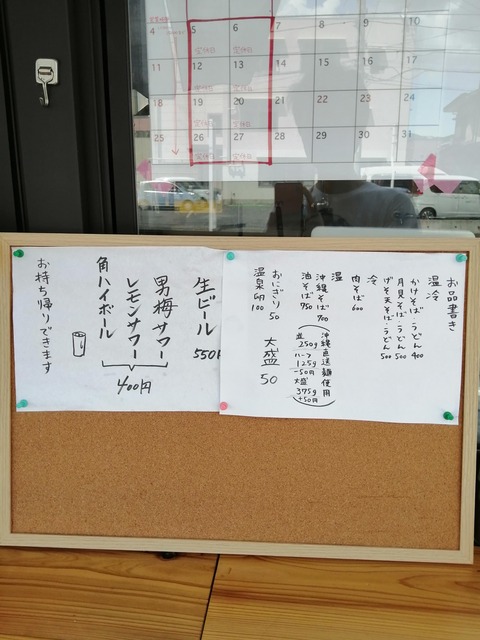 4 5 6 7 8 9 10
11 12 13 14 15 16 17
18 19 20 21 22 23 24
25 26 27 28 29 30 31
お品書き
温冷
かけそば・うどん 400
月見そば・うどん 500
げそ天そば・うどん 500
冷
肉そば 600
温
沖縄そば 700
油そば 750
沖縄直送麺使用
並 250g
ハーフ 125g
-50円
大盛 375g
+50円
おにぎり 50
温泉卵 100
大盛 50
生ビール 550円
男梅サワー
レモンサワー
角ハイボール
400円
お持ち帰りできます